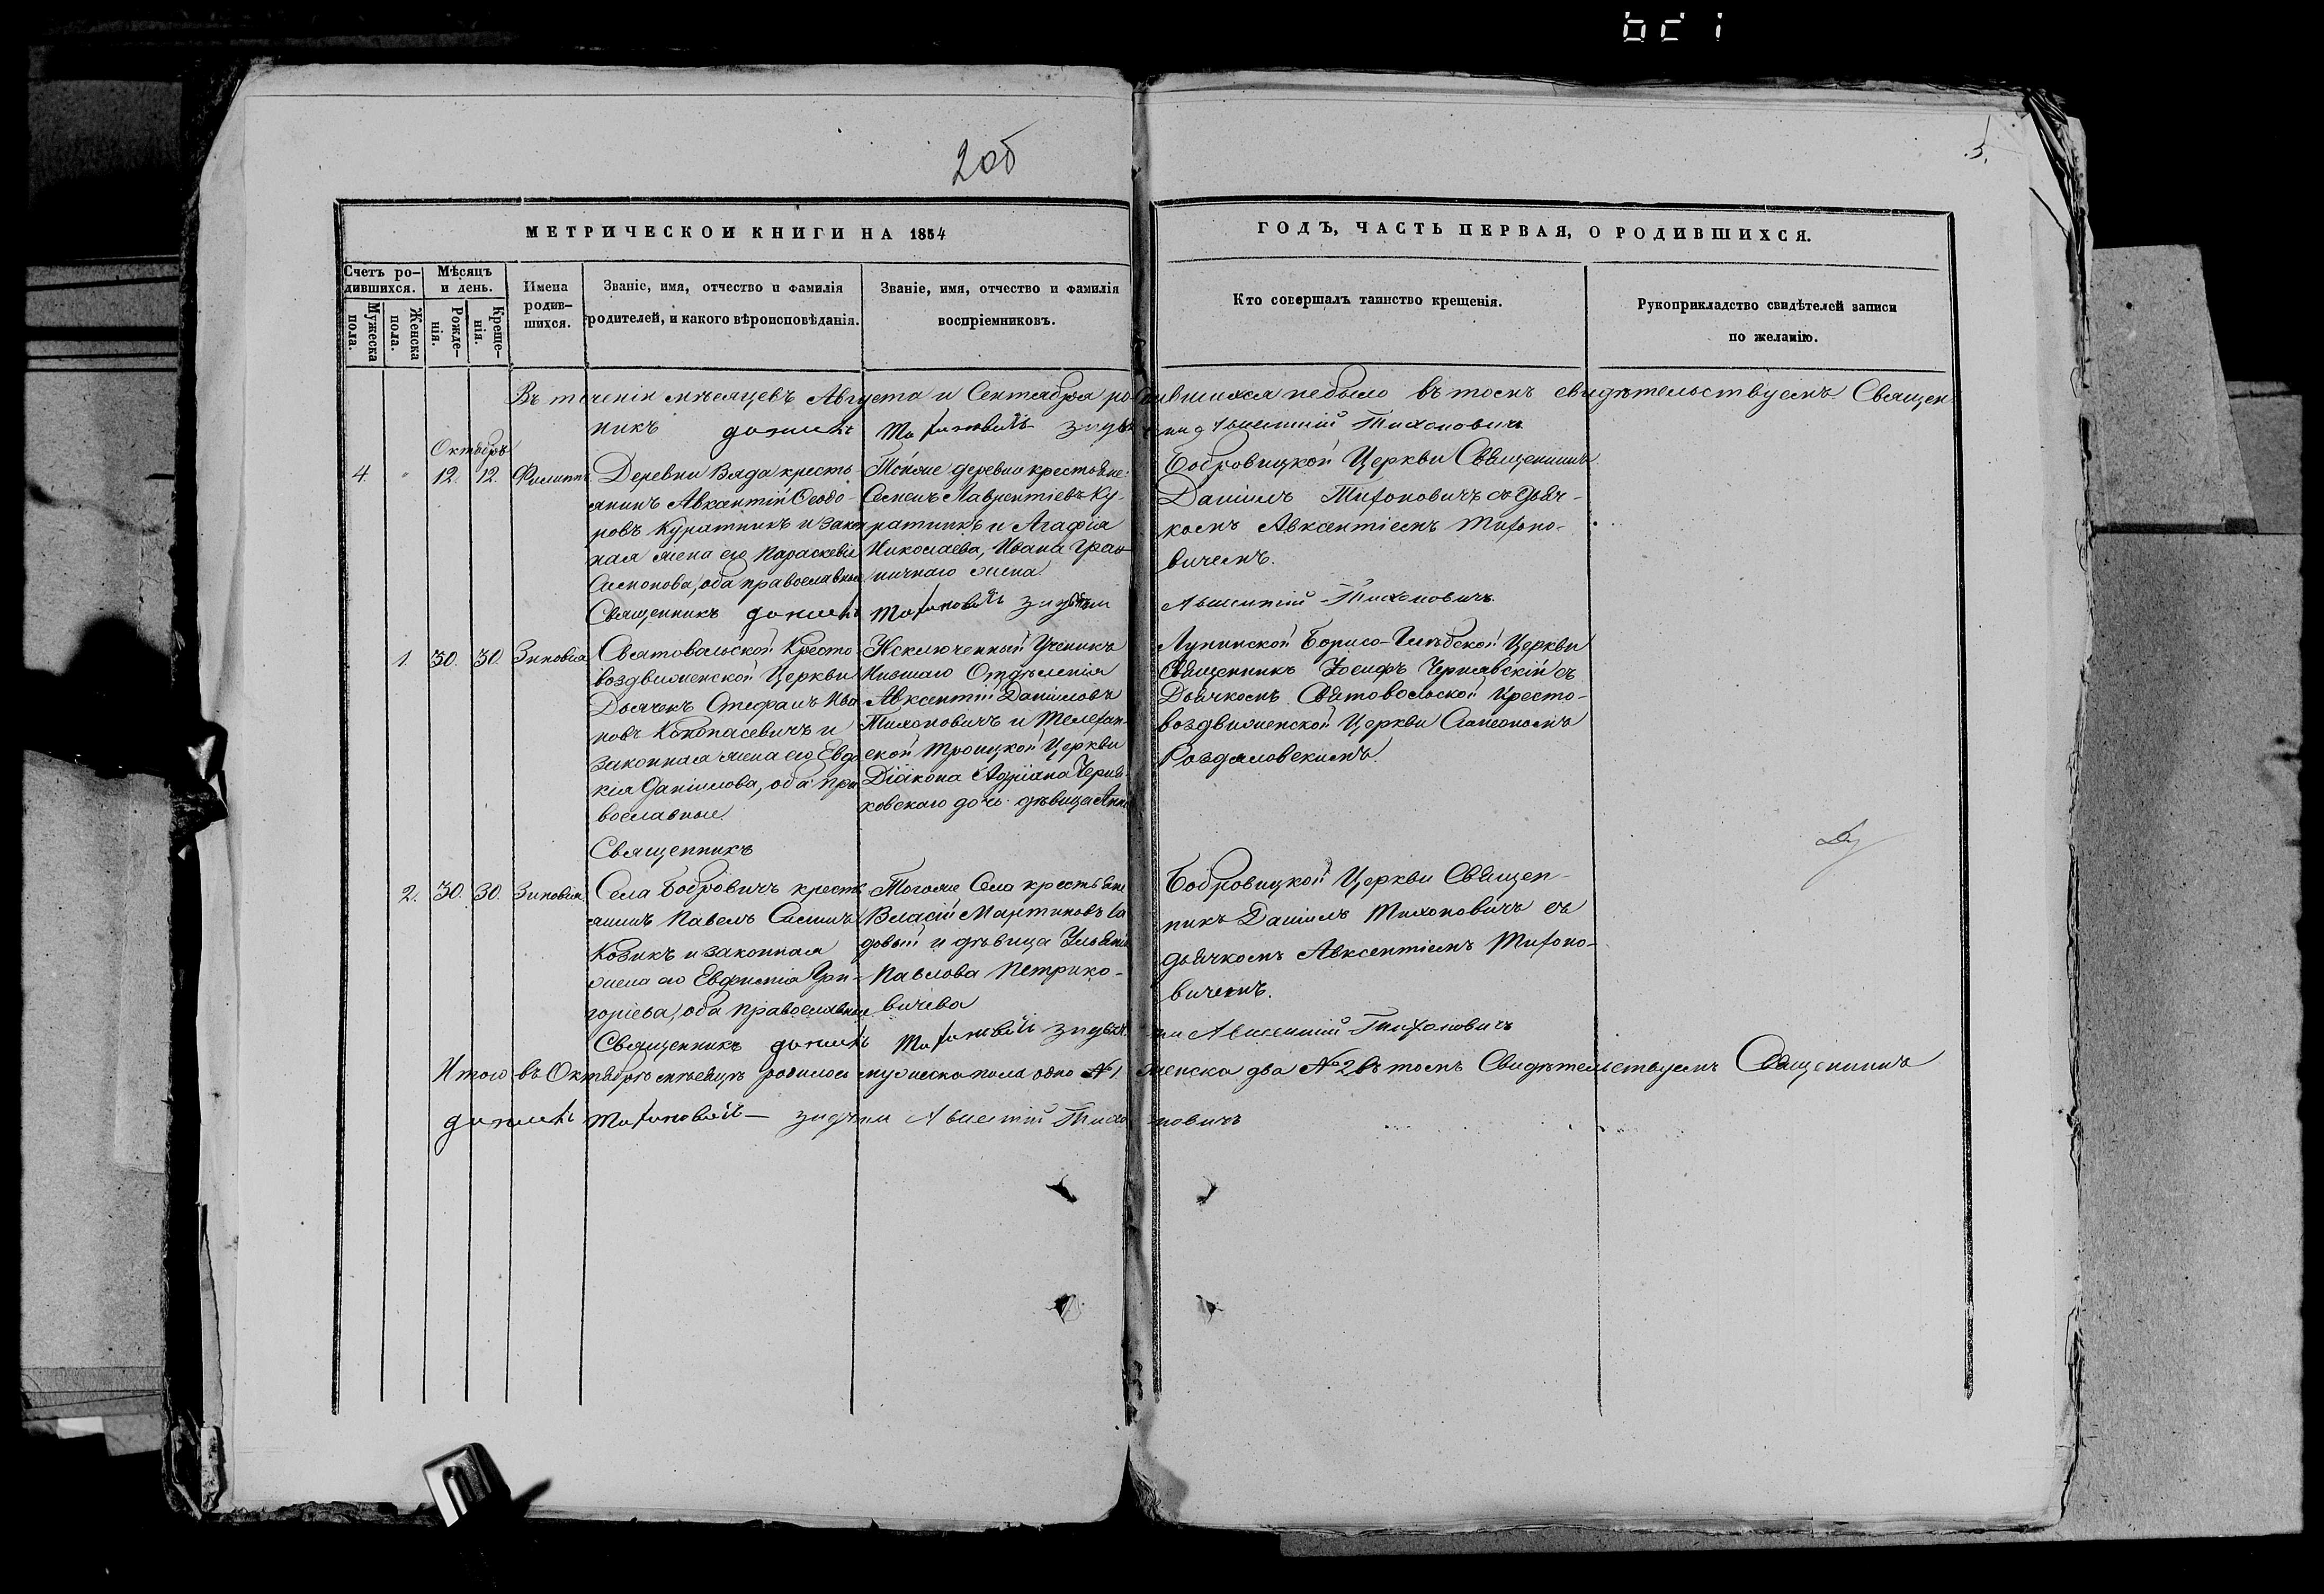 2об
5.
МЕТРИЧЕСКОЙ КНИГИ НА 1854
ГОДЪ, ЧАСТЬ ПЕРВАЯ, О РОДИВШИХСЯ.
Счетъ ро-
дившихся.
Мужеска
пола.
Женска
пола.
Мѣсяцъ
и день.
Рожде-
нія.
Креще-
нія.
Имена
родив-
шихся.
Званіе, имя, отчество и фамилія
родителей, и какого вѣроисповѣданія.
Званіе, имя, отчество и фамилія
воспріемниковъ.
Кто совершалъ таинство крещенія.
Рукоприкладство свидѣтелей записи
по желанію.
Въ теченіи мѣсяцевъ Августа и Сентября родившихся небыло въ томъ свидѣтельствуемъ Священ
никъ Даніилъ Тихоновичъ Авксентій Тихоновичъ
Октябрь
4. " 12. 12. Филиппъ
Деревни Вяда кресть
янинъ Авксентій Ѳеодо-
ровъ Куратникъ и закон
ная жена его Параскевія
Симонова, оба православные
Священникъ Даніилъ
Тойже деревни крестьяне
Семенъ Лаврентіевъ Ку-
ратникъ и Агафія
Николаева, Ивана Гран
ничнаго жена.
Тихоновичъ
Бобровицкой Церкви Священникъ
Даніилъ Тихоновичъ съ Дьяч-
комъ Авксентіемъ Тихоно-
вичемъ.
Авксентій Тихоновичъ
1. 30. 30. Зиновія
Святовольской Кресто
воздвиженской Церкви
Дьячекъ Стефанъ Ива
новъ Кононасевичъ и
законная жена его Евдо
кія Даніилова, оба пра
вославные.
Священникъ
Исключенный Ученикъ
Низшаго Отдѣленія
Авксентій Даніиловъ
Тихоновичъ и Телехан-
ской Троицкой Церкви
Діакона Адріана Черня
ковскаго дочь дѣвица Анна
Лупинской Борисо-Глѣбской Церкви
Священникъ Іосифъ Чернявскій съ
Дьячкомъ Святовольской Кресто-
воздвиженской Церкви Симеономъ
Роздяловскимъ.
2. 30. 30. Зиновія
Села Бобровичъ кресть
янинъ Павелъ
Козикъ и законная
жена его Евгенія Гри-
горіева, оба православные
Священникъ Даніилъ
Тогоже Села крестьяне
Власій Мартиновъ Са
довый и дѣвица Ульяна
Павлова Петрико-
вичева
Тихоновичъ
Бобровицкой Церкви Священ-
никъ Даніилъ Тихоновичъ съ
дьячкомъ Авксентіемъ Тихоно-
вичемъ.
Авксентій Тихоновичъ
Итого въ Октябрѣ мѣсяцѣ родилось мужеска пола одно №1. женска два №2 въ томъ Свидѣтельствуемъ Священникъ
Даніилъ Тихоновичъ — Авксентій Тихоновичъ